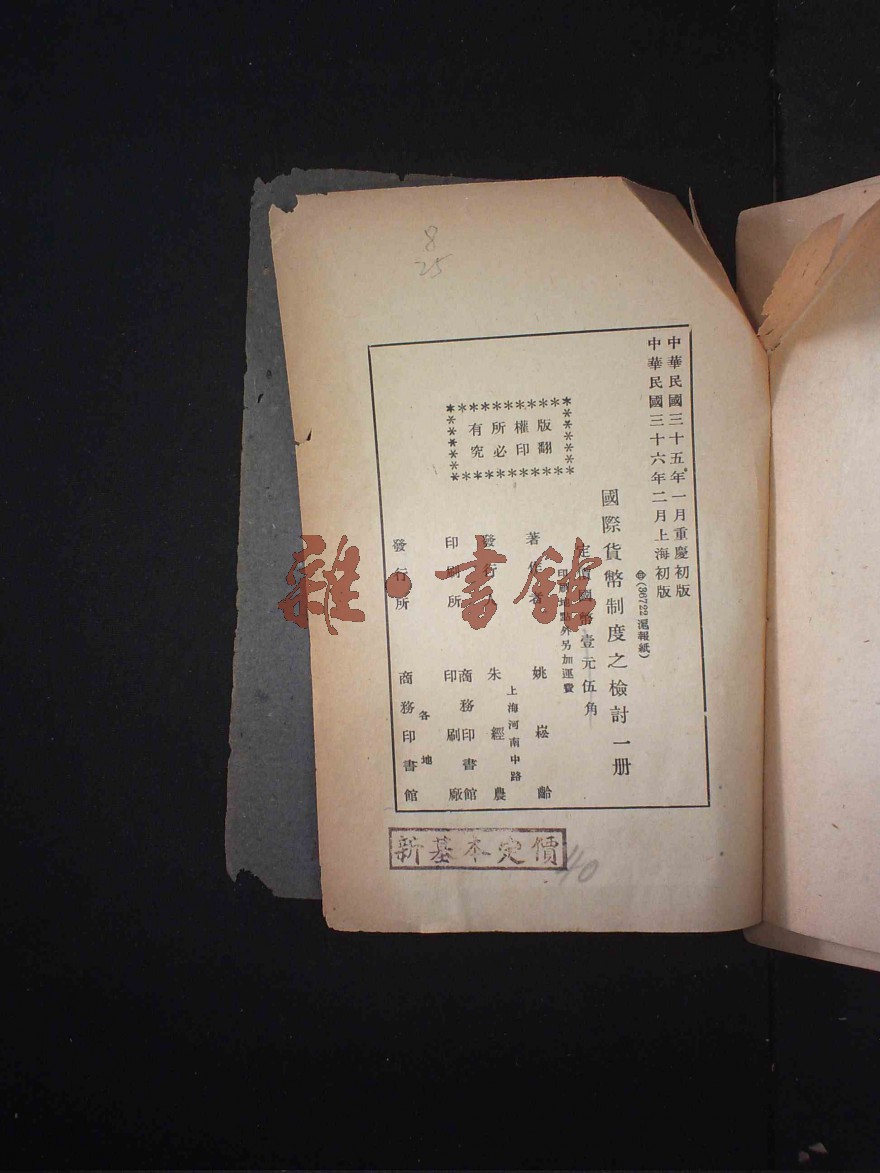 8
25
中華民國三十五年一月重慶初版
中華民國三十六年二月上海初版
(36722滬報紙)
國際貨幣制度之檢討一册
定價國幣壹元伍角
印刷地點外另加運費
版權所有
翻印必究
著作者 姚崧齡
發行人 朱經農
上海河南中路
印刷所 商務印書館印刷廠
發行所 各地商務印書館
新基本定價
.40
雜·書館